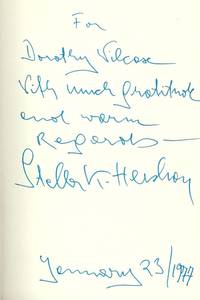 For
Dorothy Wilcox
With much gratitude
and warm
Regards—
Stella K. Hershan
January 23/1974